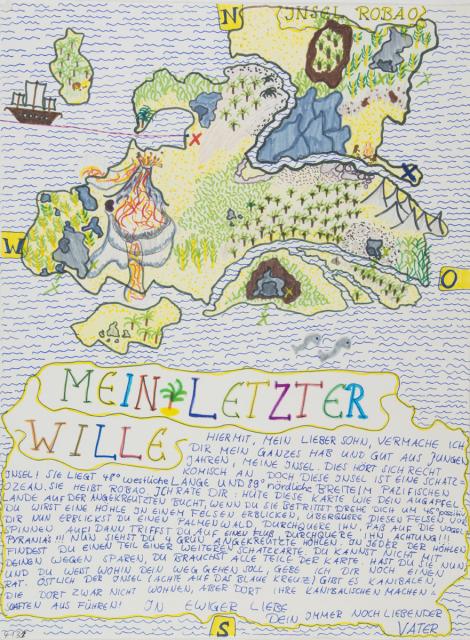 N
INSEL ROBAO
W
O
MEIN LETZTER
WILLE
HIERMIT, MEIN LIEBER SOHN, VERMACHE ICH
DIR MEIN GANZES HAB UND GUT AUS JUNGEN
JAHREN, MEINE INSEL. DIES HÖRT SICH RECHT
KOMISCH AN DOCH DIESE INSEL IST EINE SCHATZ=
INSEL! SIE LIEGT 48° westliche LÄNGE UND 89° nördlich BREITE IM PAZIFISCHEN
OZEAN. SIE HEIßT ROBAO. ICH RATE DIR: HÜTE DIESE KARTE WIE DEIN AUGAPFEL.
LANDE AUF DER ANGEKREUZTEN BUCHT, WENN DU SIE BETRITST DREHE DICH UM 45°
DU WIRST EINE HÖHLE IN EINEM FELSEN ERBLICKEN, ÜBERQUERE DIESEN FELSEN VOR
DIR NUN ERBLICKST DU EINEN PALMENWALD, DURCHQUERE IHN, PAß AUF DIE VOGEL
SPINNEN AUF! DANN TRIFFST DU AUF EINEN FLUß, DURCHQUERE IHN ACHTUNG!!!
PYRANIA'S!!! NUN SIEHST DU 4 GRÜN ANGEKREUZTE HÖHLEN. IN JEDER DER HÖHLEN
FINDEST DU EINEN TEIL EINER WEITEREN SCHATZKARTE. DU KANNST NICHT MIT
DEINEN WEGEN SPAREN, DU BRAUCHST ALLE TEILE DER KARTE HAST DU SIE NUN
UND DU WEIST WOHIN DEIN WEG GEHEN SOLL, GEBE ICH DIR NOCH EINEN
RAT: ÖSTLICH DER INSEL (ACHTE AUF DAS BLAUE KREUZ) GIBT ES KANIBALEN,
DIE DORT ZWAR NICHT WOHNEN, ABER DORT IHRE KANIBALISCHEN MACHEN=
SCHAFTEN AUS FÜHREN! IN EWIGER LIEBE
DEIN IMMER NOCH LIEBENDER
VATER
S